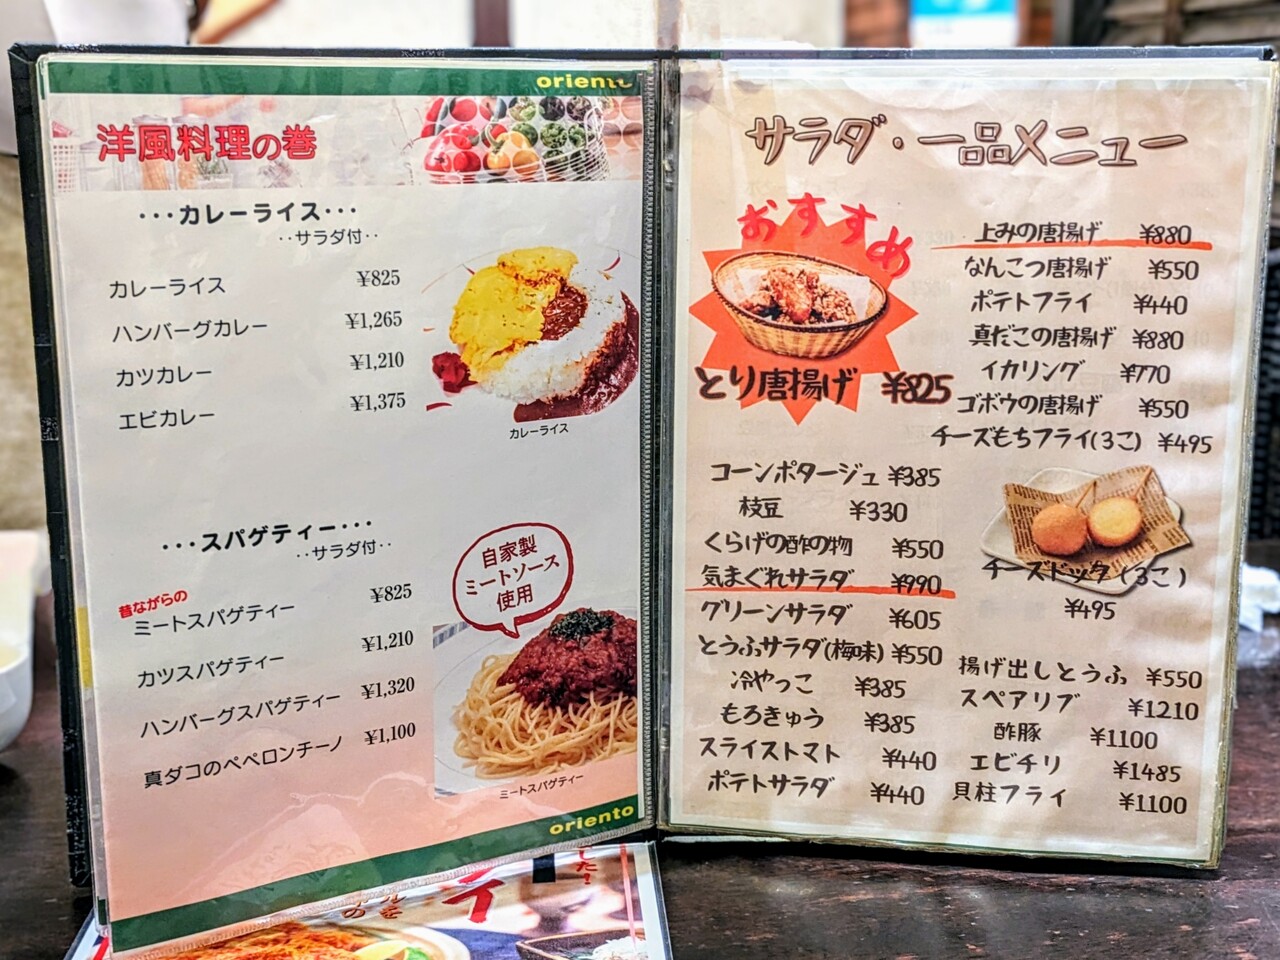 oriento
洋風料理の巻
･･･カレーライス･･･
･･サラダ付･･
カレーライス ¥825
ハンバーグカレー ¥1,265
カツカレー ¥1,210
エビカレー ¥1,375
カレーライス
･･･スパゲティー･･･
･･サラダ付･･
自家製
ミートソース
使用
昔ながらの
ミートスパゲティー ¥825
カツスパゲティー ¥1,210
ハンバーグスパゲティー ¥1,320
真ダコのペペロンチーノ ¥1,100
ミートスパゲティー
oriento
サラダ・一品メニュー
おすすめ
とり唐揚げ ¥825
上みの唐揚げ ¥880
なんこつ唐揚げ ¥550
ポテトフライ ¥440
真だこの唐揚げ ¥880
イカリング ¥770
ゴボウの唐揚げ ¥550
チーズもちフライ(3こ) ¥495
コーンポタージュ ¥385
枝豆 ¥330
くらげの酢の物 ¥550
気まぐれサラダ ¥990
グリーンサラダ ¥605
とうふサラダ(梅味) ¥550
冷やっこ ¥385
もろきゅう ¥385
スライストマト ¥440
ポテトサラダ ¥440
チーズドック(3こ)
¥495
揚げ出しとうふ ¥550
スペアリブ ¥1210
酢豚 ¥1100
エビチリ ¥1485
貝柱フライ ¥1100
した!